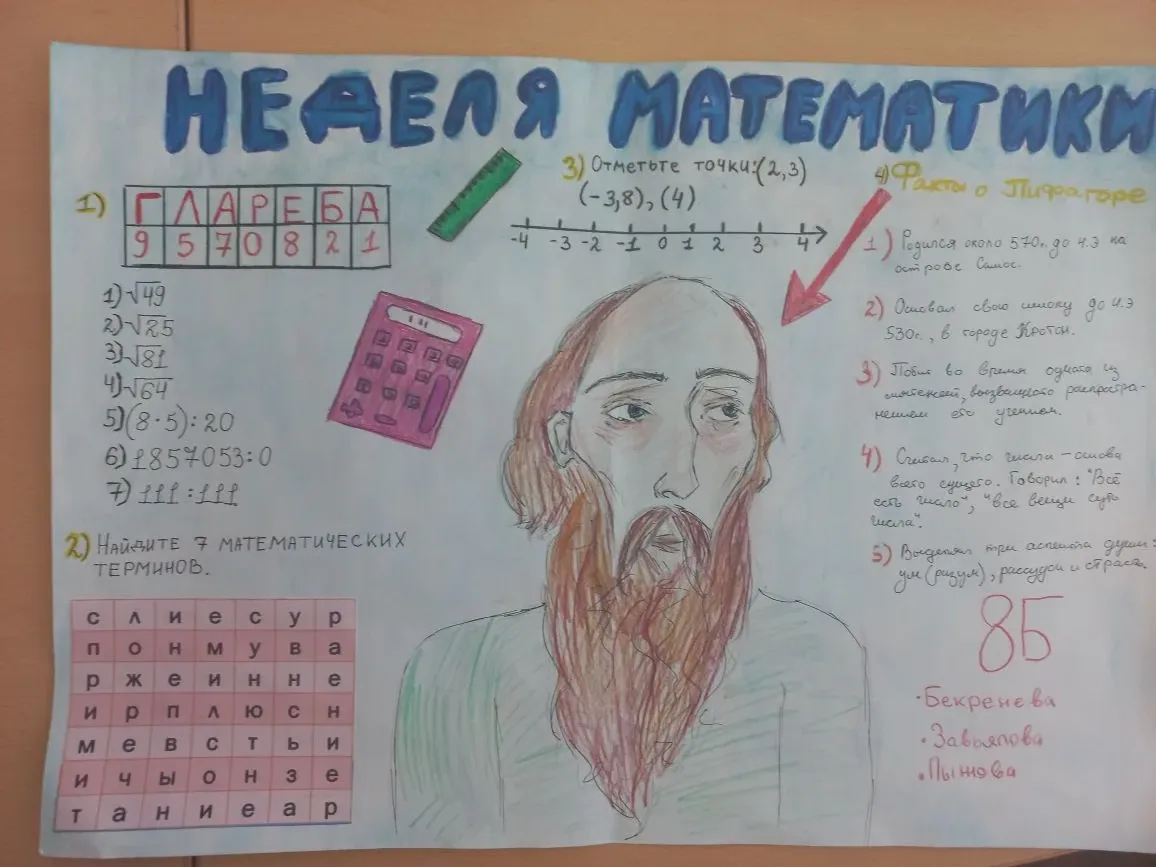 НЕДЕЛЯ МАТЕМАТИКИ
1)
Г Л А Р Е Б А
9 5 7 0 8 2 1
1) √49
2) √25
3) √81
4) √64
5) (8·5):20
6) 1857053:0
7) 111:111
2) НАЙДИТЕ 7 МАТЕМАТИЧЕСКИХ
ТЕРМИНОВ.
с л и е с у р
п о н м у в а
р ж е и н н е
и р п л ю с н
м е в с т ь и
и ч ы о н з е
т а н и е а р
3) Отметьте точки:(2,3)
(-3,8), (4)
-4 -3 -2 -1 0 1 2 3 4
4) Факты о Пифагоре
1) Родился около 570г. до н.э на
острове Самос.
2) Основал свою школу до н.э
530г., в городе Кротон.
3) Погиб во время одного из
мятежей, вызванного распростра-
нением его учения.
4) Считал, что числа – основа
всего сущего. Говорил: "Всё
есть число", "все вещи суть
числа".
5) Выделял три аспекта души:
ум (разум), рассудок и страсть.
8Б
·Бекренева
·Завьялова
·Пыжова